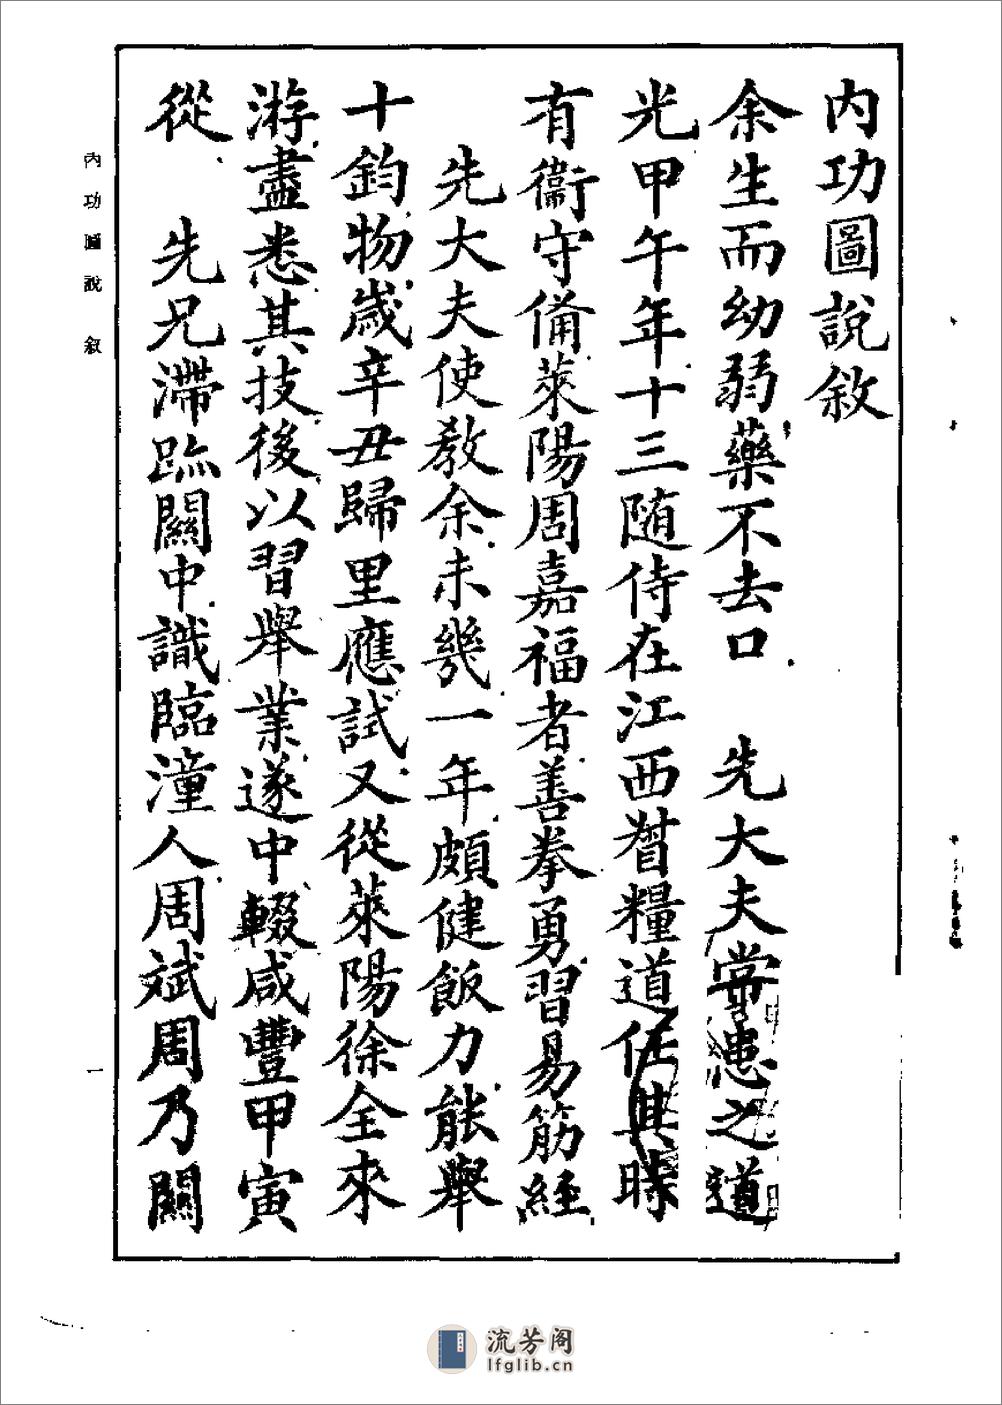 内功圖說敘
余生而幼弱藥不去口　先大夫常患之道
光甲午年十三随侍在江西督糧道任其時
有衞守備萊陽周嘉福者善拳勇習易筋經
先大夫使教余未幾一年頗健飯力能舉
十鈞物歲辛丑歸里應試又從萊陽徐全來
游盡悉其技後以習舉業遂中輟咸豐甲寅
從　先兄滯跡關中識臨潼人周斌周乃關
內功圖說　敘
一
流芳阁
lfglib.cn